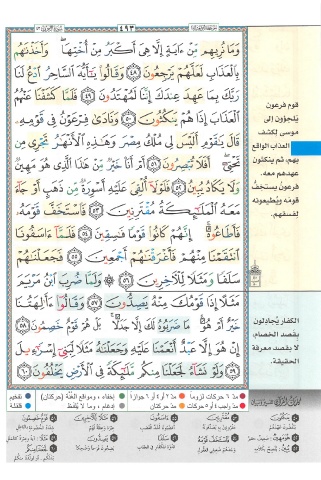 ٤٩٣
وَمَا نُرِيهِم مِّنْ ءَايَةٍ إِلَّا هِىَ أَكْبَرُ مِنْ أُخْتِهَا ۖ وَأَخَذْنَٰهُم
بِٱلْعَذَابِ لَعَلَّهُمْ يَرْجِعُونَ ٤٨ وَقَالُوا۟ يَٰٓأَيُّهَ ٱلسَّاحِرُ ٱدْعُ لَنَا
رَبَّكَ بِمَا عَهِدَ عِندَكَ إِنَّنَا لَمُهْتَدُونَ ٤٩ فَلَمَّا كَشَفْنَا عَنْهُمُ
ٱلْعَذَابَ إِذَا هُمْ يَنكُثُونَ ٥٠ وَنَادَىٰ فِرْعَوْنُ فِى قَوْمِهِۦ
قَالَ يَٰقَوْمِ أَلَيْسَ لِى مُلْكُ مِصْرَ وَهَٰذِهِ ٱلْأَنْهَٰرُ تَجْرِى مِن
تَحْتِىٓ ۖ أَفَلَا تُبْصِرُونَ ٥١ أَمْ أَنَا۠ خَيْرٌ مِّنْ هَٰذَا ٱلَّذِى هُوَ مَهِينٌ
وَلَا يَكَادُ يُبِينُ ٥٢ فَلَوْلَآ أُلْقِىَ عَلَيْهِ أَسْوِرَةٌ مِّن ذَهَبٍ أَوْ جَآءَ
مَعَهُ ٱلْمَلَٰٓئِكَةُ مُقْتَرِنِينَ ٥٣ فَٱسْتَخَفَّ قَوْمَهُۥ
فَأَطَاعُوهُ ۚ إِنَّهُمْ كَانُوا۟ قَوْمًا فَٰسِقِينَ ٥٤ فَلَمَّآ ءَاسَفُونَا
ٱنتَقَمْنَا مِنْهُمْ فَأَغْرَقْنَٰهُمْ أَجْمَعِينَ ٥٥ فَجَعَلْنَٰهُمْ
سَلَفًا وَمَثَلًا لِّلْـَٔاخِرِينَ ٥٦ وَلَمَّا ضُرِبَ ٱبْنُ مَرْيَمَ
مَثَلًا إِذَا قَوْمُكَ مِنْهُ يَصِدُّونَ ٥٧ وَقَالُوٓا۟ ءَأَٰلِهَتُنَا
خَيْرٌ أَمْ هُوَ ۚ مَا ضَرَبُوهُ لَكَ إِلَّا جَدَلًۢا ۚ بَلْ هُمْ قَوْمٌ خَصِمُونَ ٥٨
إِنْ هُوَ إِلَّا عَبْدٌ أَنْعَمْنَا عَلَيْهِ وَجَعَلْنَٰهُ مَثَلًا لِّبَنِىٓ إِسْرَٰٓءِيلَ
٥٩ وَلَوْ نَشَآءُ لَجَعَلْنَا مِنكُم مَّلَٰٓئِكَةً فِى ٱلْأَرْضِ يَخْلُفُونَ ٦٠
قوم فرعون
يلجؤون إلى
موسى لكشف
العذاب الواقع
بهم، ثم ينكثون
عهدهم معه.
فرعون يستخفّ
قومه ويُطيعونه
لفسقهم.
الكفار يُجادِلون
بقصد الخصام،
لا بقصد معرفة
الحقيقة.